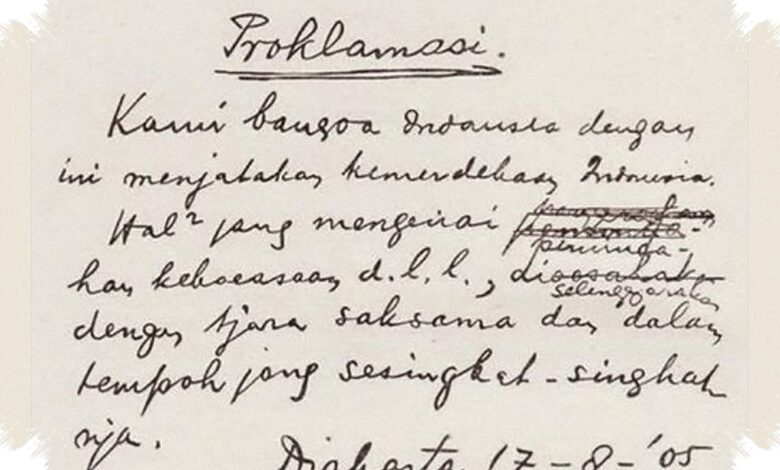 Proklamasi.
Kami bangsa Indonesia dengan
ini menjatakan kemerdekaan Indonesia.
Hal² jang mengenai
peminda-
han kekoeasaan d.l.l., dioesahakan
selenggarakan
dengan tjara saksama dan dalam
tempoh jang sesingkat-singkat
nja.
Djakarta 17-8-'05